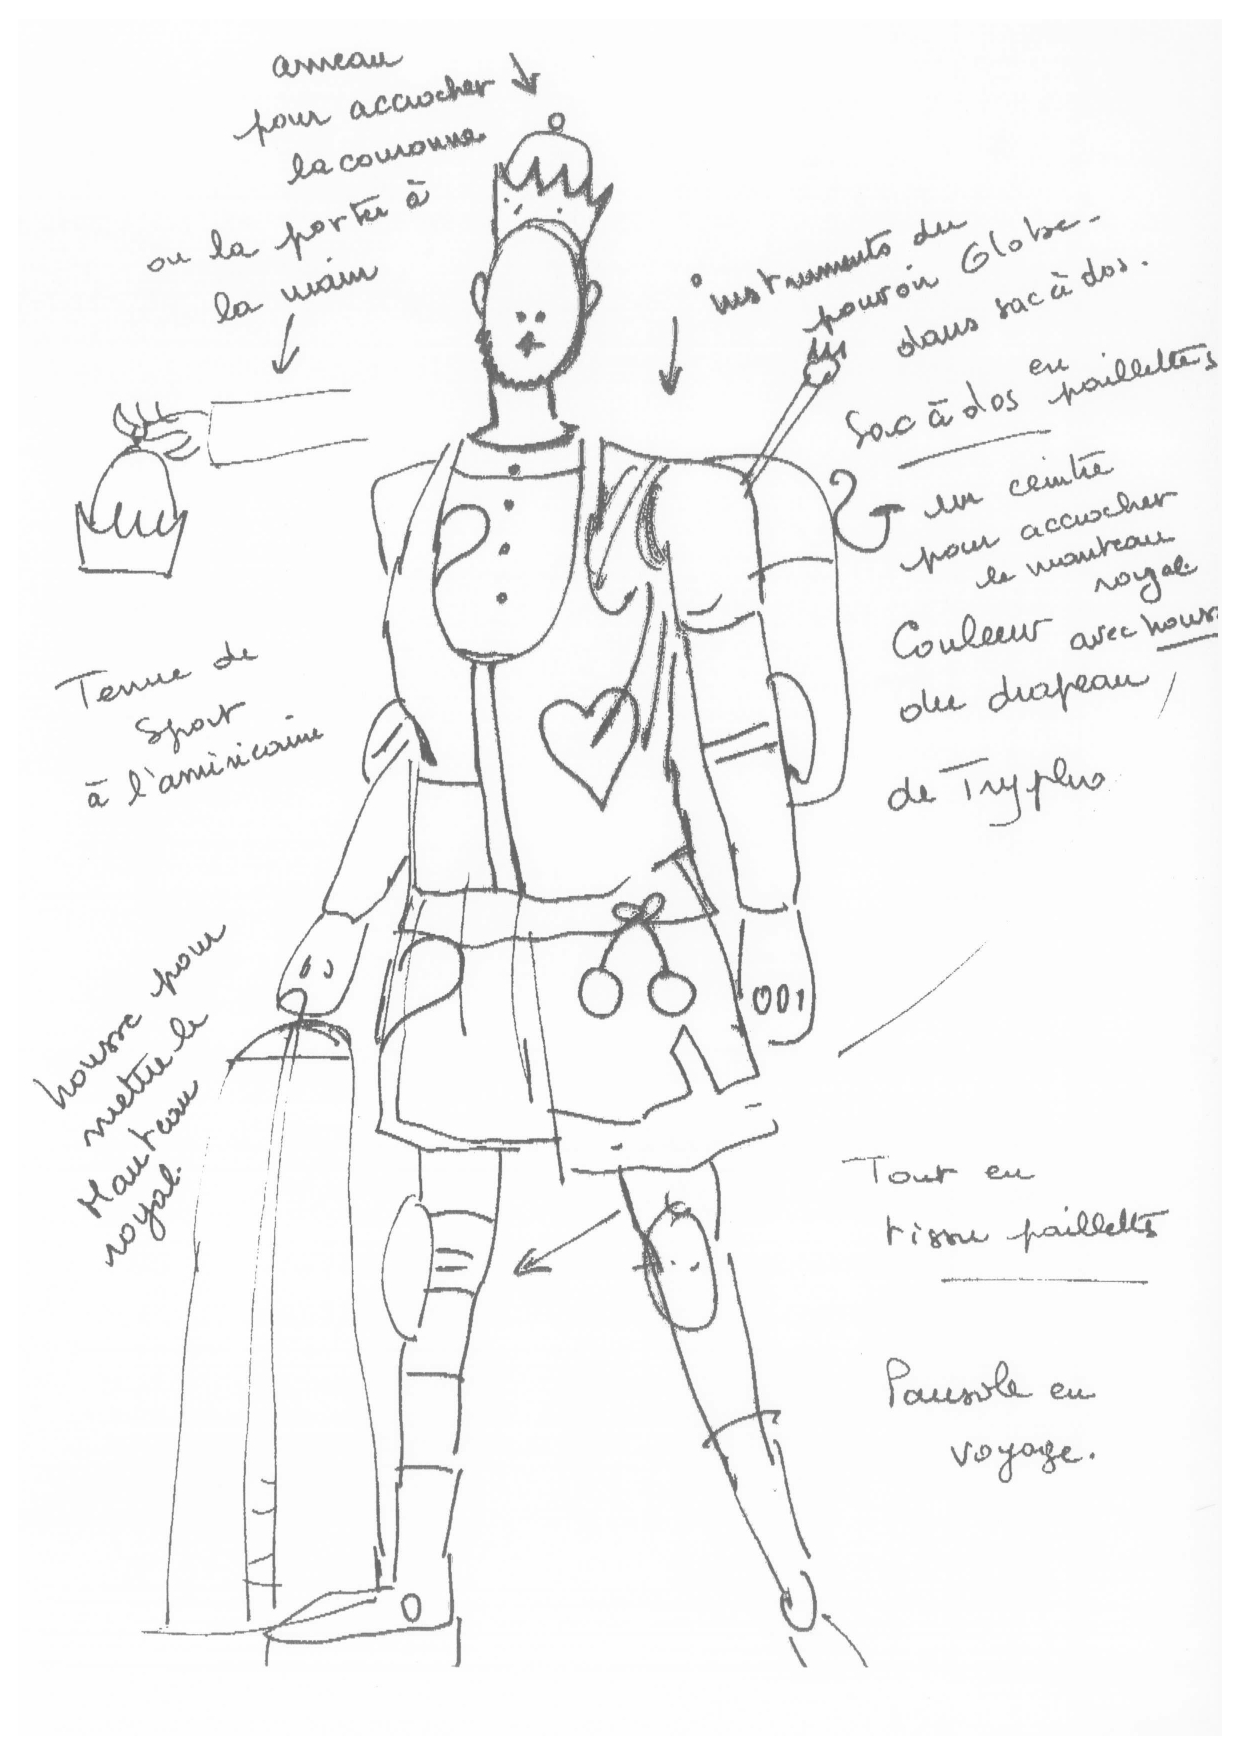 anneau
pour accrocher
la couronne
ou la porter à
la main
instruments du
pouvoir Globe-
dans sac à dos.
Sac à dos en paillettes
un ceintre
pour accrocher
le manteau
royal
avec hous
Couleur
du drapeau
de Trypho
Tenue de
Sport
à l'américaine
housse pour
mettre le
Manteau
royal.
001
Tout en
tissu paillettes
Pausole en
voyage.